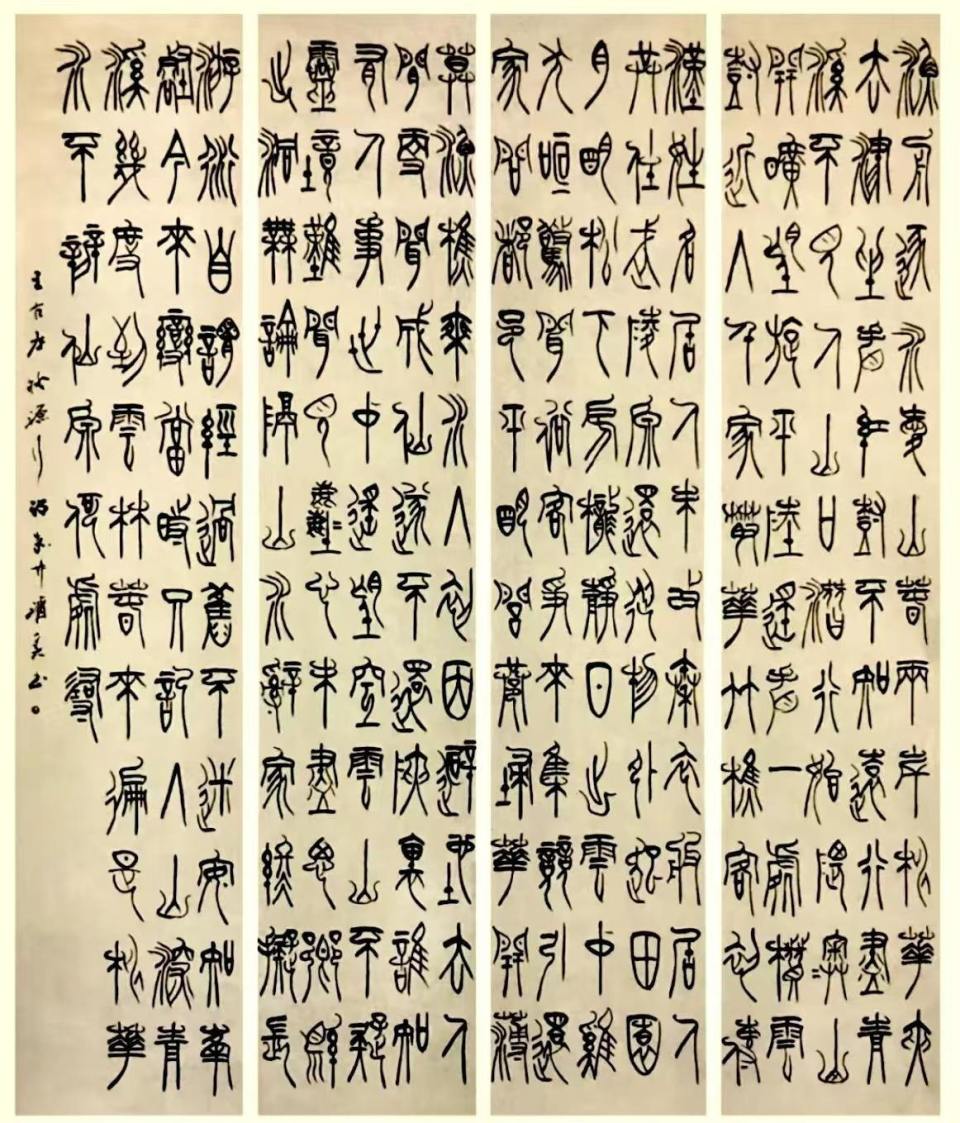 漁舟逐水愛山春兩岸桃華夾
去津坐看紅樹不知遠行盡青
溪不見人山口潛行始隈隩山
開曠望旋平陸遙看一處攢雲
樹近入千家散華竹樵客初傳
漢姓名居人未改秦衣服居人
共住武陵原還從物外起田園
月明松下房櫳靜日出雲中雞
犬喧驚聞俗客爭來集競引還
家問都邑平明閭巷埽華開薄
莫漁樵乘水入初因避地去人
間更聞成仙遂不還峽裏誰知
有人事世中遙望空雲山不疑
靈境難聞見塵心未盡思鄉縣
出洞無論隔山水辭家終擬長
游衍自謂經過舊不迷安知峯
壑今來變當時只記入山深青
溪幾度到雲林春來徧是桃華
水不辨仙原何處尋
王右丞桃源行